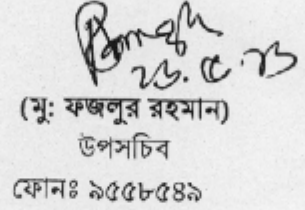 ২৬.৫.১৩
(মু: ফজলুর রহমান)
উপসচিব
ফোনঃ ৯৫৫৮৫৪৯